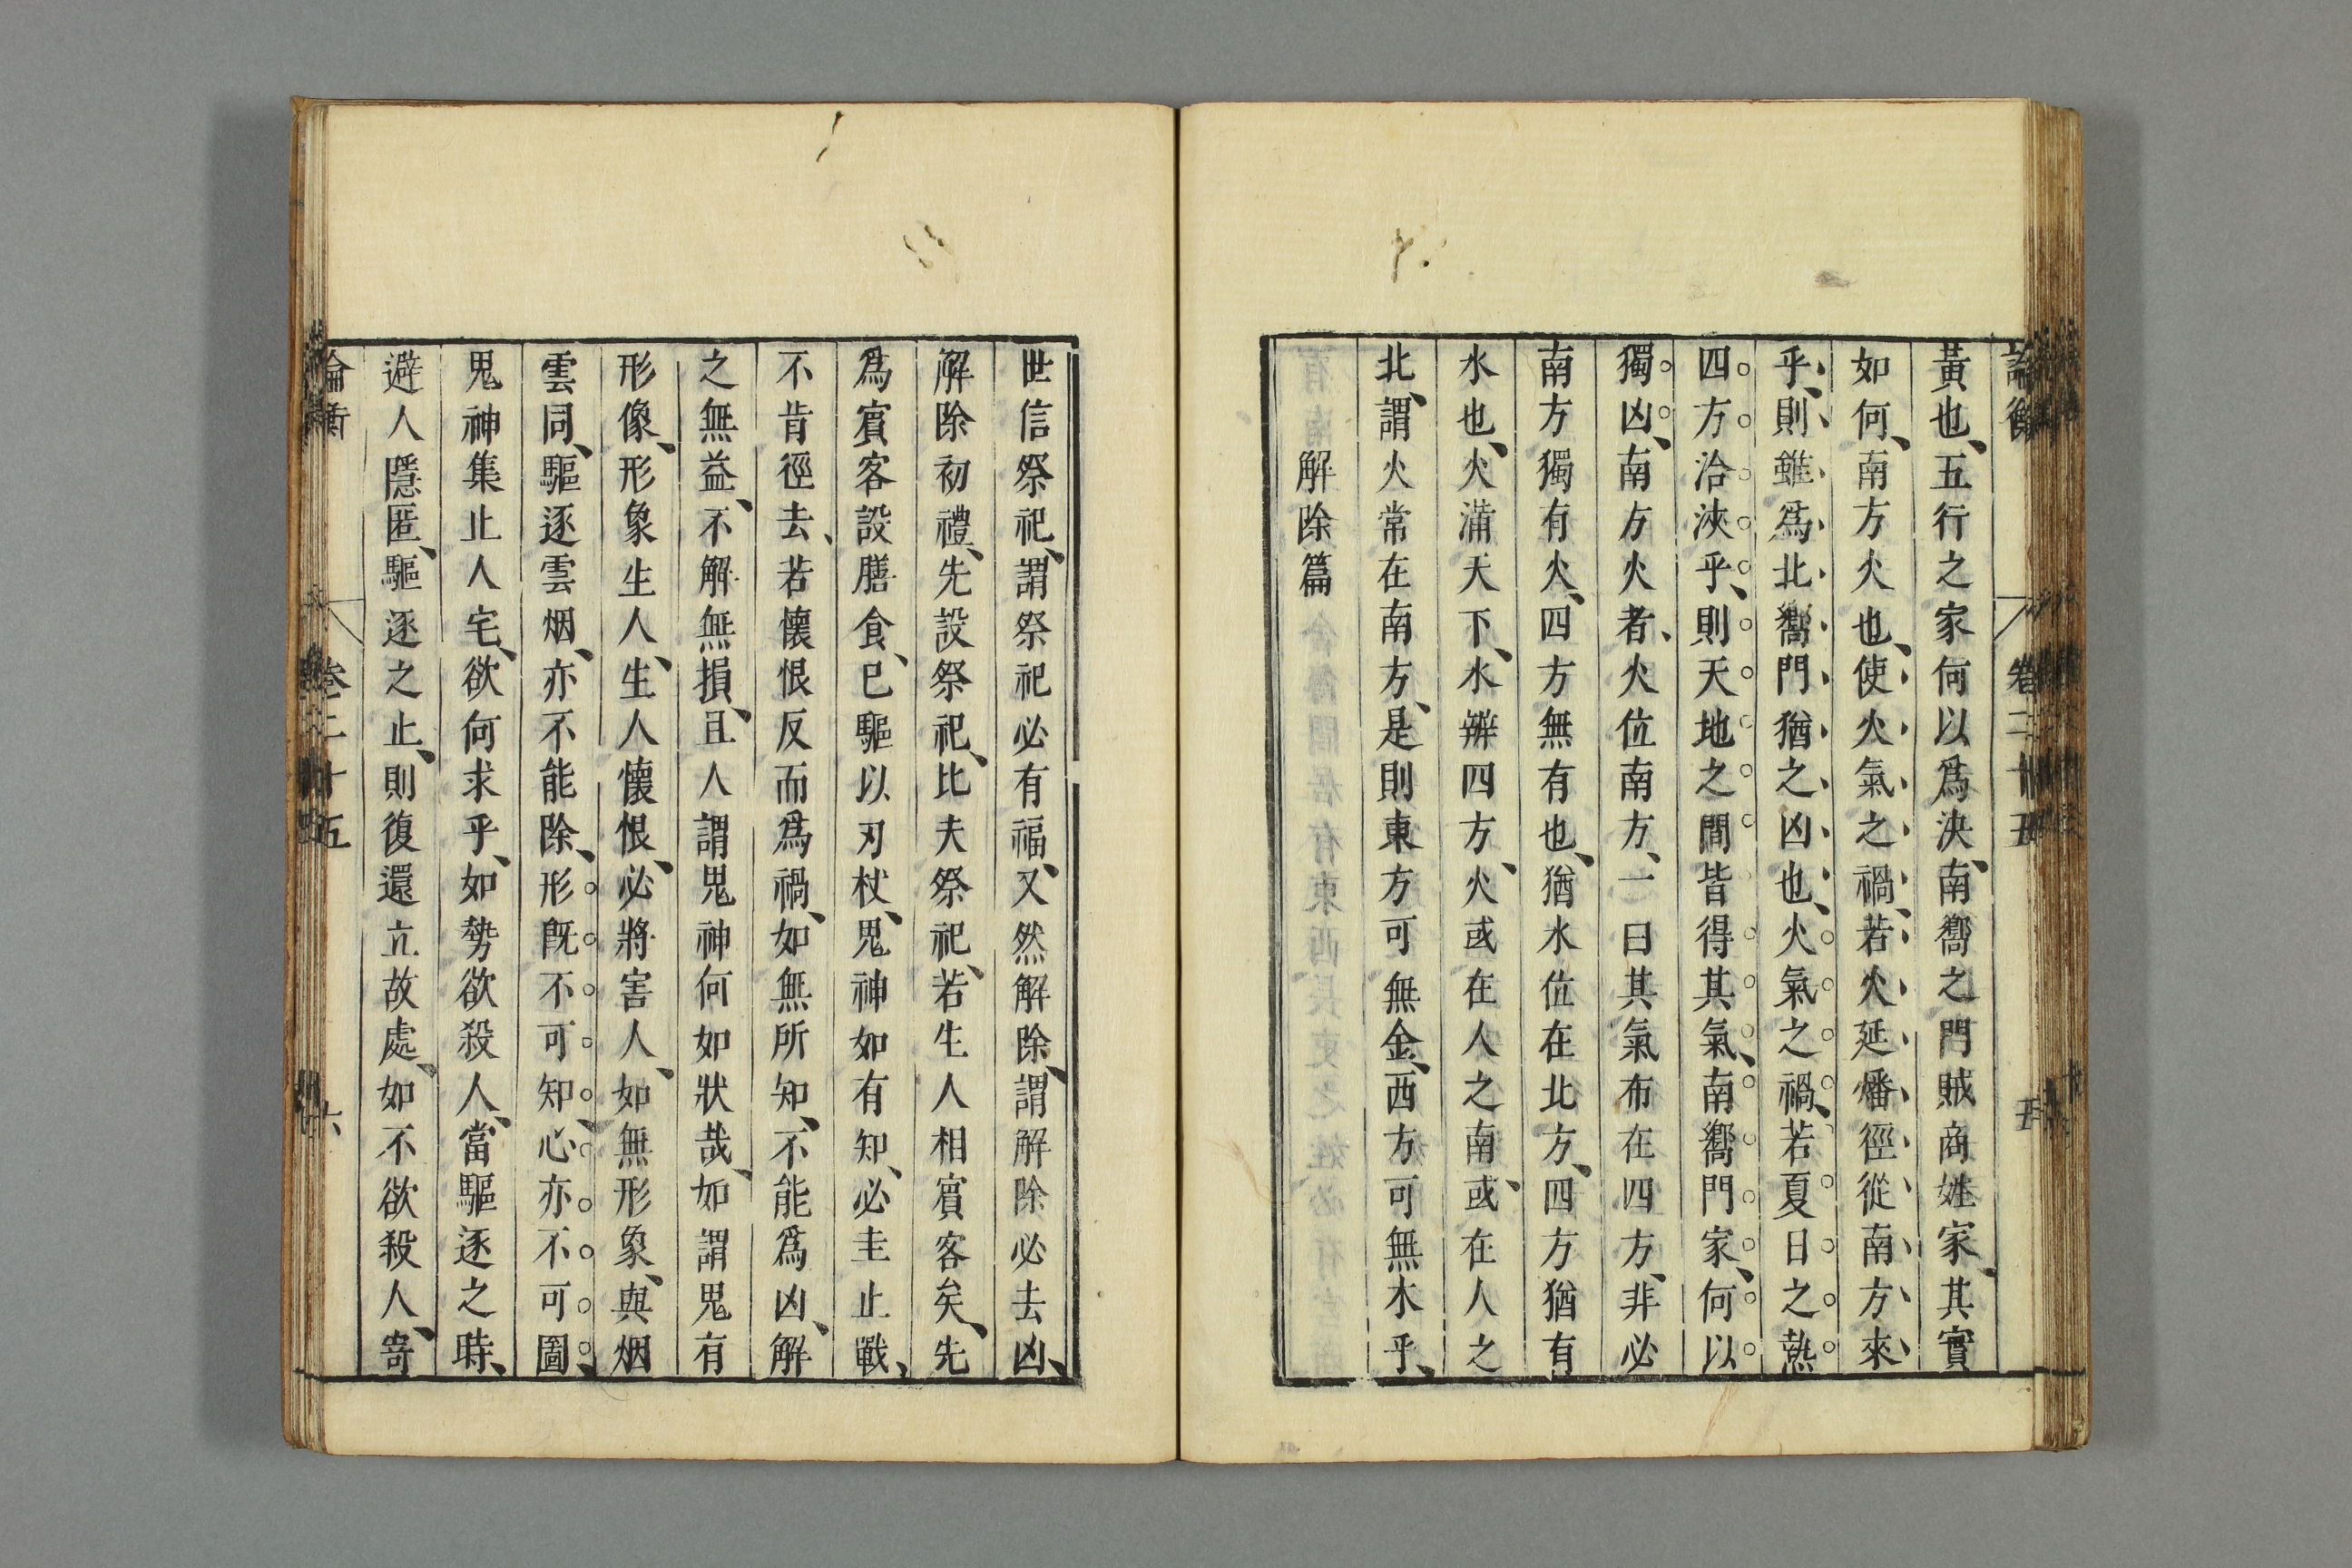 論衡 卷二十五 五
黃也、五行之家何以爲決、南嚮之門賊商姓家、其實
如何、南方火也、使火氣之禍、若火延燔徑從南方來
乎、則雖爲北嚮門猶之凶也、火氣之禍、若夏日之熱
四方洽浹乎、則天地之間皆得其氣、南嚮門家、何以
獨凶、南方火者、火位南方、一曰其氣布在四方、非必
南方獨有火、四方無有也、猶水位在北方、四方猶有
水也、火滿天下、水辨四方、火或在人之南、或在人之
北、謂火常在南方、是則東方可無金、西方可無木乎、
解除篇
世信祭祀、謂祭祀必有福、又然解除、謂解除必去凶、
解除初禮、先設祭祀、比夫祭祀、若生人相賓客矣、先
爲賓客設膳食、已驅以刃杖、鬼神如有知、必圭止戰、
不肯徑去、若懷恨反而爲禍、如無所知、不能爲凶、解
之無益、不解無損、且人謂鬼神何如狀哉、如謂鬼有
形像、形象生人、生人懷恨、必將害人、如無形象、與烟
雲同、驅逐雲烟、亦不能除、形既不可知、心亦不可圖、
鬼神集止人宅、欲何求乎、如勢欲殺人、當驅逐之時、
避人隱匿、驅逐之止、則復還立故處、如不欲殺人、寄
論衡 卷二十五 六